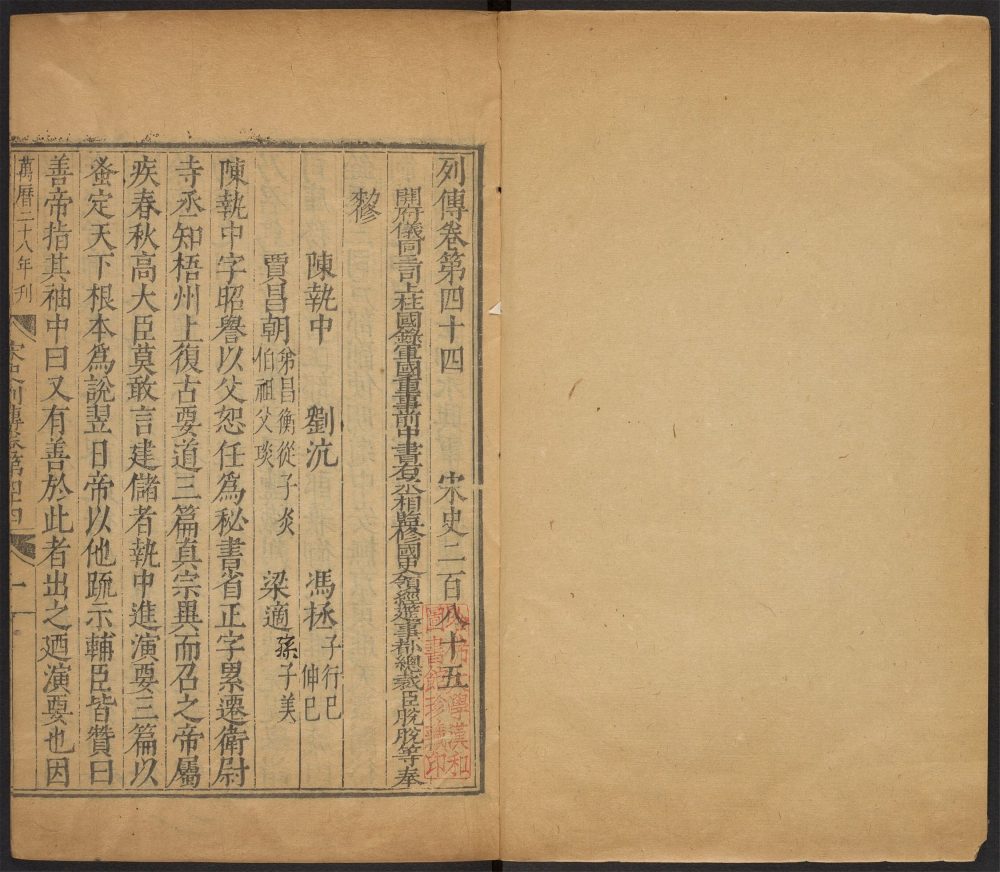 列傳卷第四十四　宋史二百八十五
開府儀同三司上柱國錄軍國重事前中書右丞相監修國史領經筵事都總裁臣脫脫等奉
敕修
陳執中　劉沆　馮拯子行己
伸己
賈昌朝弟昌衡從子炎
伯祖父琰　梁適孫子美
陳執中字昭譽以父恕任爲秘書省正字累遷衛尉
寺丞知梧州上復古要道三篇真宗異而召之帝屬
疾春秋高大臣莫敢言建儲者執中進演要三篇以
蚤定天下根本爲說翌日帝以他疏示輔臣皆贊曰
善帝指其袖中曰又有善於此者出之廼演要也因
萬曆二十八年刊
宋史列傳卷第四十四　一
哈佛大學漢和
圖書館珍藏印